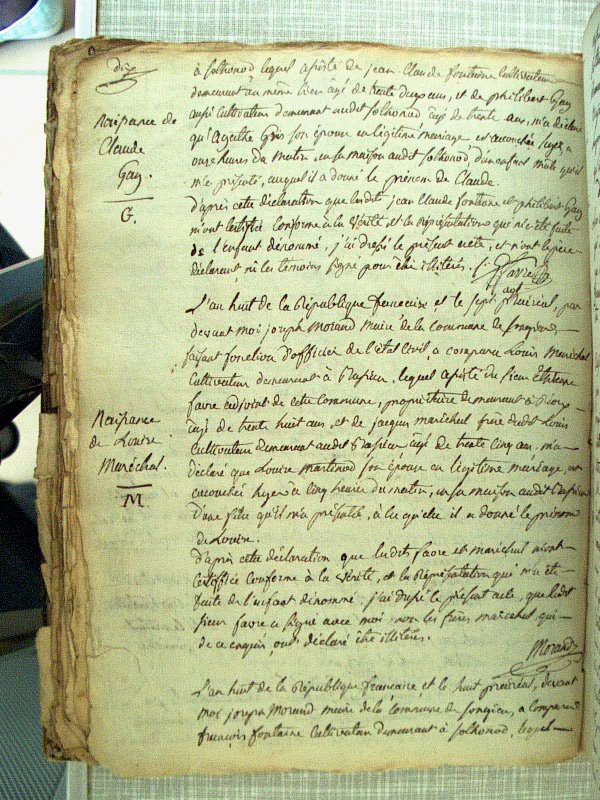 dix
à Solhonod lequel assisté de jean Claude fontaine Cultivateur
demeurant au même lieu agé de trente deux ans, et de philibert Gay
aussi Cultivateur demeurant audit Solhonod agé de trente ans, m'a déclaré
qu'Agathe Gros son épouse en légitime mariage est accouchée hyer à
onze heures du matin, en sa maison audit Solhonod, d'un enfant mâle qu'il
m'a présenté, auquel il a donné le prénom de Claude.
Naissance de
Claude
Gay.
G.
D'après cette déclaration que lesdits jean Claude fontaine et philibert Gay
m'ont Certifié Conforme à la Vérité, et la Représentation qui m'a été faite
de l'enfant dénommé, j'ai dressé le présent acte, et n'ont le père
déclarant, ni les temoins signé pour être illitérés.
favre
agt
L'an huit de la République francaise, et le sept prairial, par
devant moi joseph Morand maire de la commune de Songieu,
faisant fonction d'officier de l'état Civil, a comparu Louis Maréchal
Cultivateur demeurant à Bassieu, lequel assisté du sieur Etienne
favre adjoint de cette Commune, propriétaire demeurant à
agé de trente huit ans, et de jacques maréchal frère dudit Louis
Cultivateur demeurant audit Bassieu agé de trente Cinq ans, m'a
déclaré que Louise Martinod son épouse en légitime mariage, est
accouchée hyer à Cinq heures du matin, en sa maison audit Bassieu
d'une fille qu'il m'a présenté, à laquelle il a donné le prénom
de Louise.
Naissance
de Louise
Maréchal.
M
D'après cette déclaration que lesdits favre et maréchal m'ont
Certiffiée Conforme à la Vérité, et la Représentation qui m'a été
faite de l'enfant dénommé. j'ai dressé le présent acte, que ledit
sieur favre a signé avec moi, non les frères maréchal qui
de ce enquis, ont déclaré être illitérés.
Morand
L'an huit de la République française et le huit prairial, devant
moi joseph Morand maire de la Commune de Songieu, a comparu
françois fontaine Cultivateur demeurant à Solhonod, lequel